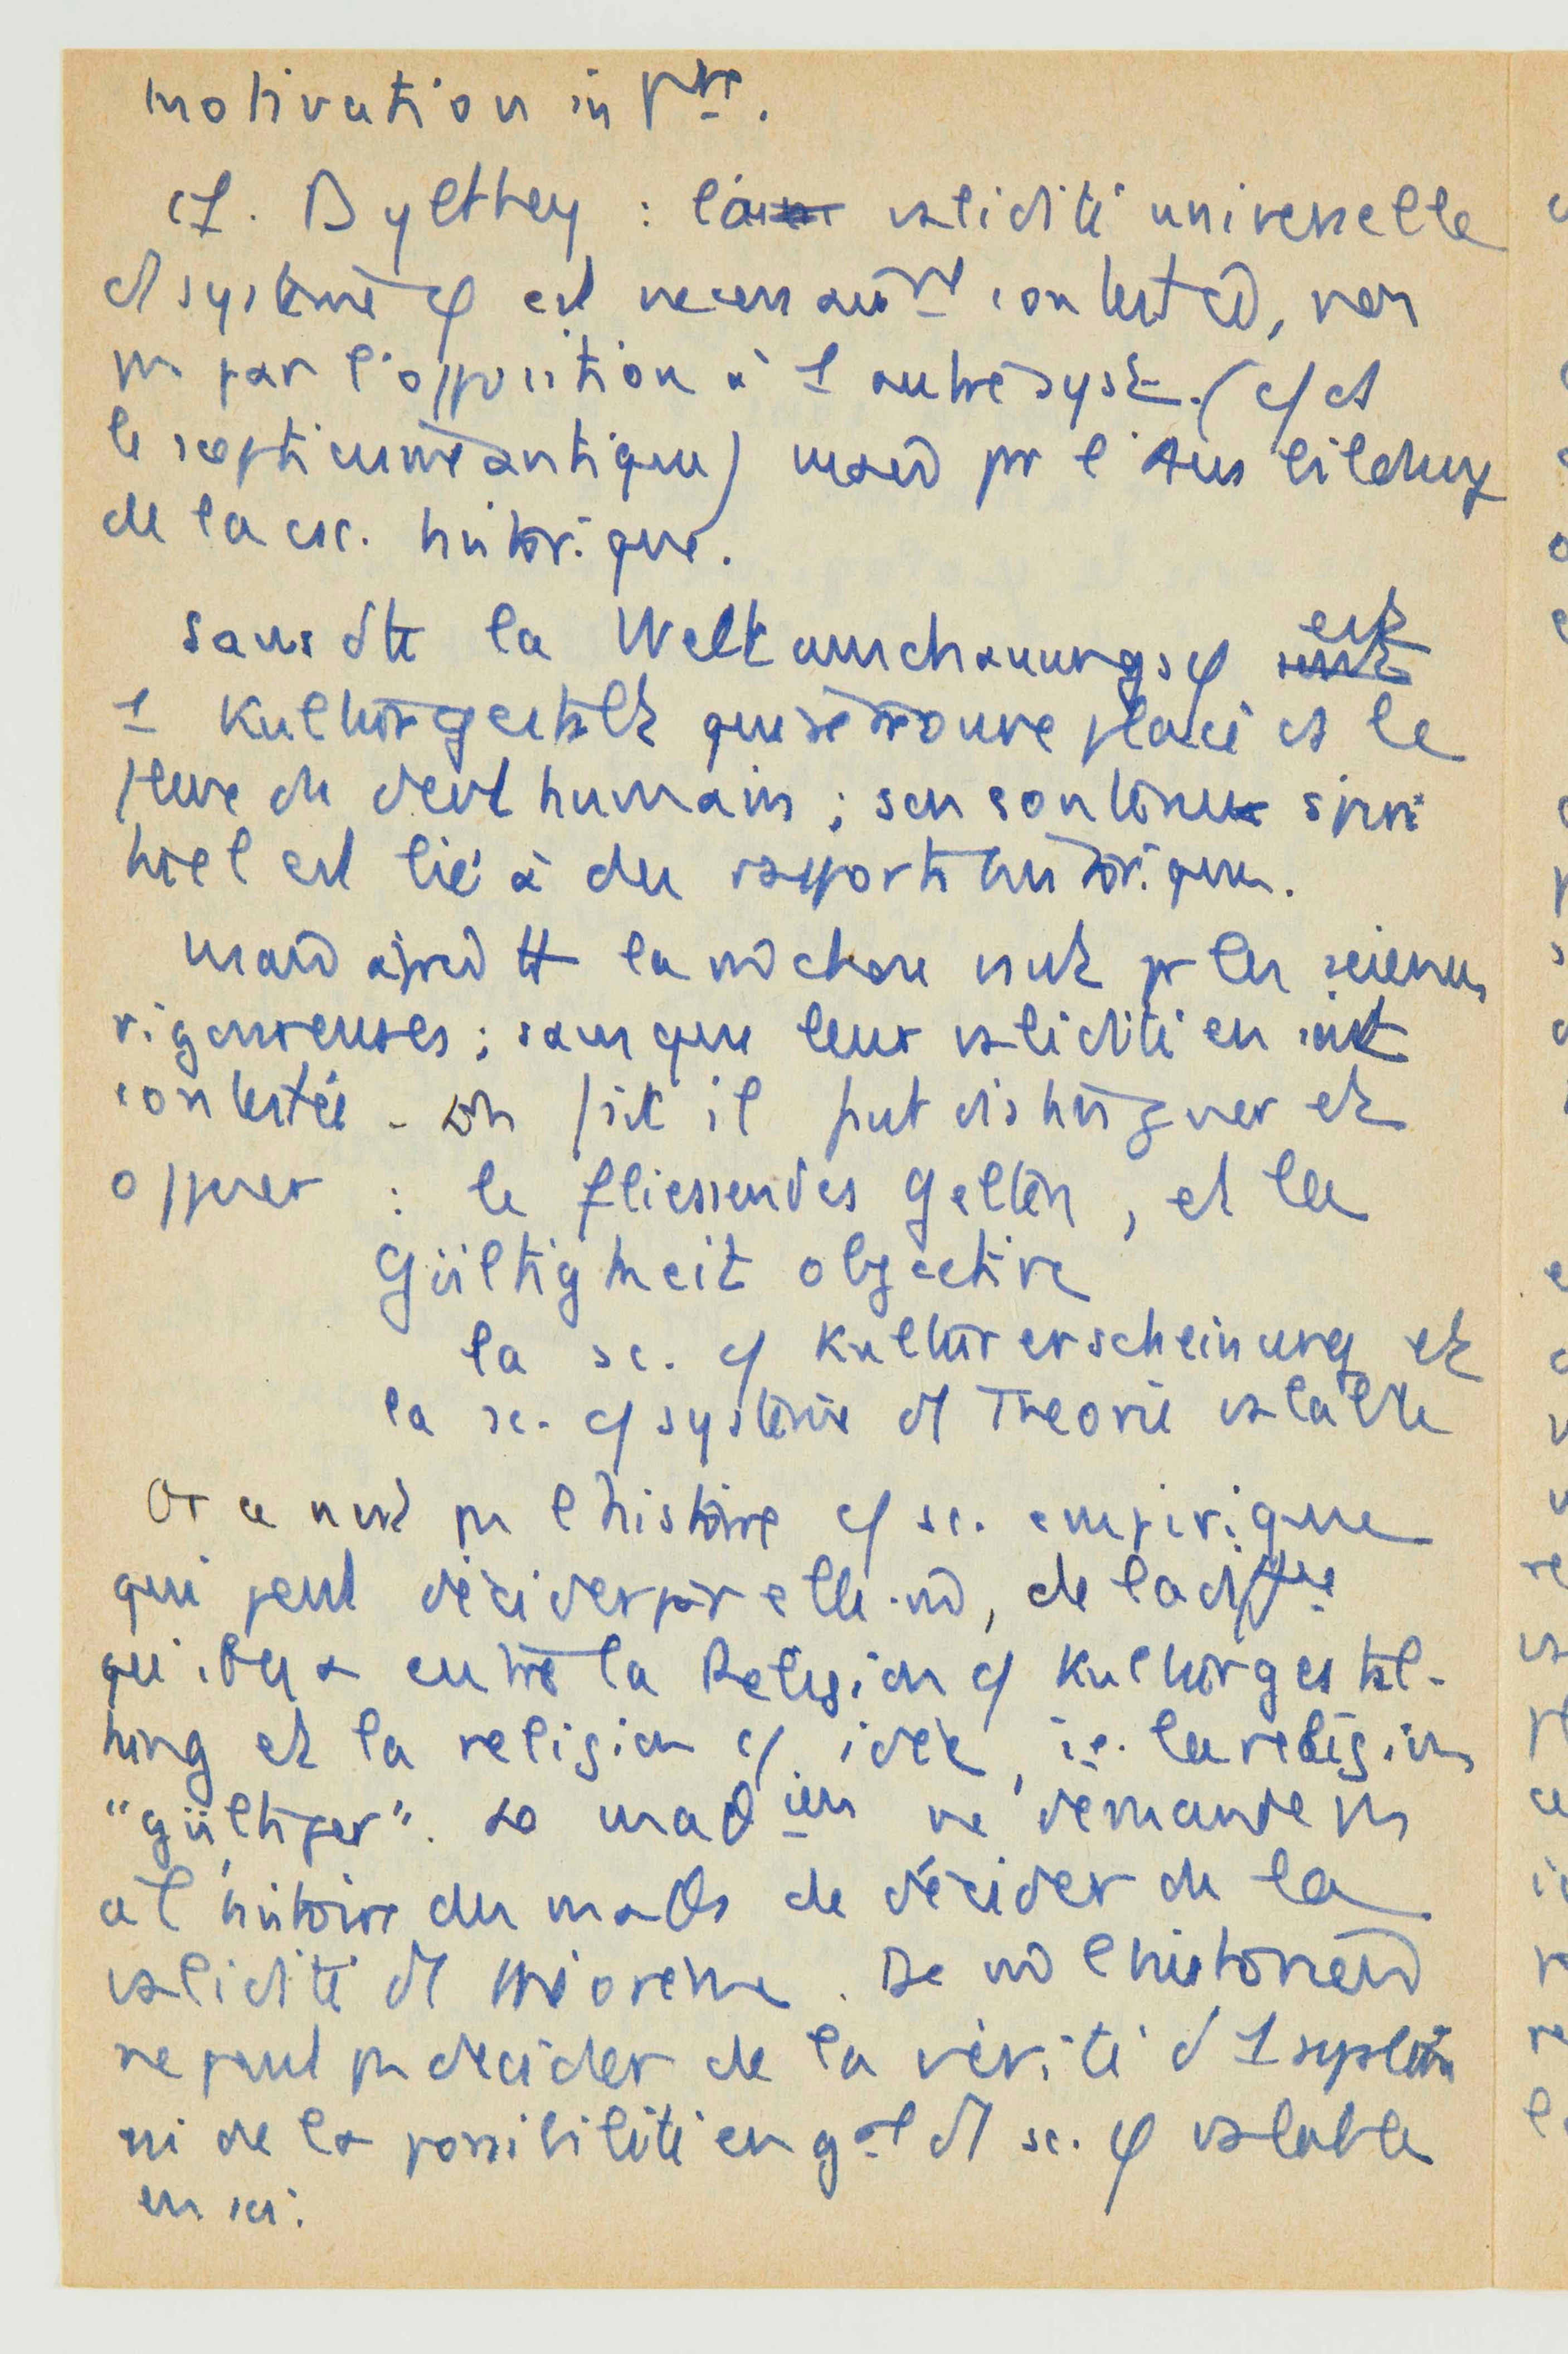 motivation int^re.
cf. Dylthey : la validité universelle
d1 système φ est necessair^nt contestée, non
pas par l'opposition à 1 autre syst. (cf ds
le scepticisme antique) mais par l'Ausbildung
de la csc. historique.
sans dte la Weltanschauungsφ est
1 Kulturgestalt qui se trouve placé ds le
fleuve du devt humain ; son contenu spiri
tuel est lié à des rapports historiques.
mais après tt la m̂ chose vaut pr les sciences
rigoureuses ; sans que leur validité en soit
contestée. En fait il faut distinguer et
opposer : le fliessendes Gelten, et la
Gültigkeit objective
la sc. cf Kulturerscheinung et
la sc. cf système d1 Theorie valable
Or ce n'est pas l'histoire cf sc. empirique
qui peut décider par elle-m̂, de la diff^ce
qu'il y a entre la Religion cf Kulturgestal-
tung et la religion cf idée, i.e. la religion
"gültiger". Le math^ien ne demande pas
à l'histoire des maths de décider de la
validité d1 théorème. De m̂ l'historien
ne peut pas décider de la vérité d'1 système
ni de la possibilité en g^al d1 sc. φ valable
en soi.